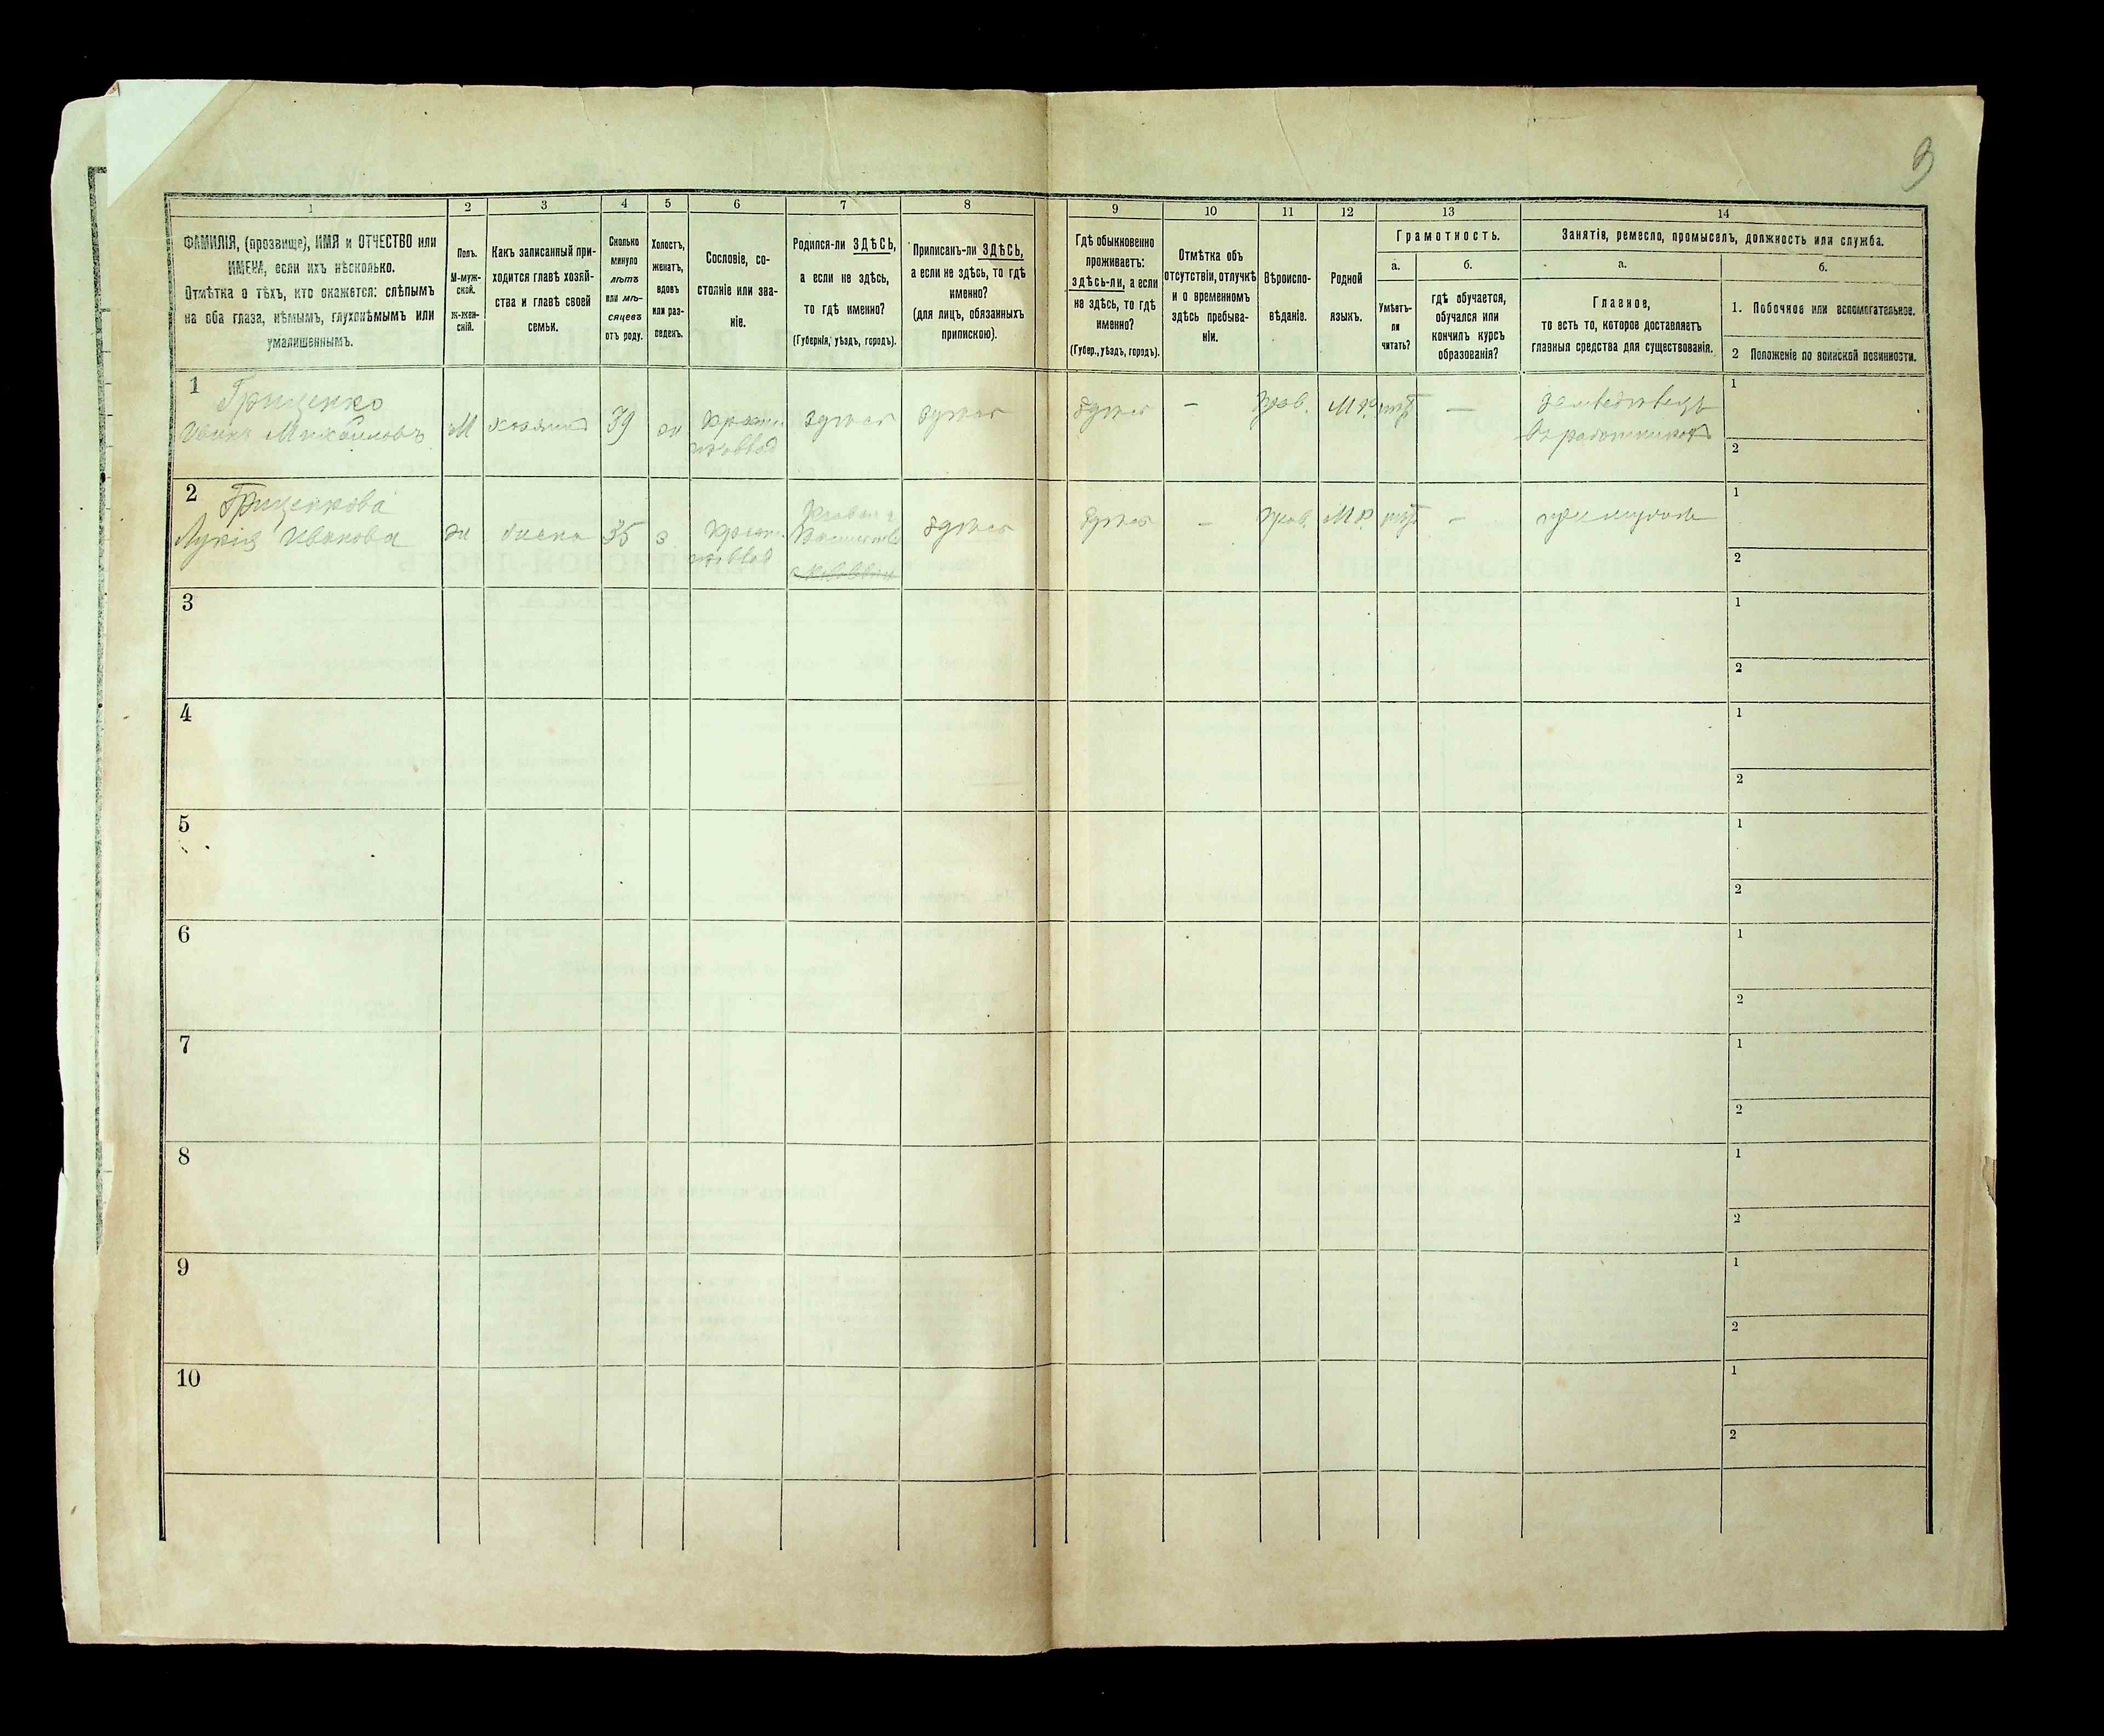 3
1 2 3 4 5 6 7 8 9 10 11 12 13 14
ФАМИЛІЯ, (прозвище), ИМЯ и ОТЧЕСТВО или
ИМЕНА, если ихъ нѣсколько.
Отмѣтка о тѣхъ, кто окажется: слѣпымъ
на оба глаза, нѣмымъ, глухонѣмымъ или
умалишеннымъ.
Полъ.
М-муж-
ской.
Ж-жен-
скій.
Какъ записанный при-
ходится главѣ хозяй-
ства и главѣ своей
семьи.
Сколько
минуло
лѣтъ
или мѣ-
сяцевъ
отъ роду.
Холостъ,
женатъ,
вдовъ
или раз-
веденъ.
Сословіе, со-
стояніе или зва-
ніе.
Родился-ли ЗДѢСЬ,
а если не здѣсь,
то гдѣ именно?
(Губернія, уѣздъ, городъ).
Приписанъ-ли ЗДѢСЬ,
а если не здѣсь, то гдѣ
именно?
(для лицъ, обязанныхъ
припискою).
Гдѣ обыкновенно
проживаетъ:
здѣсь-ли, а если
не здѣсь, то гдѣ
именно?
(Губер., уѣздъ, городъ).
Отмѣтка объ
отсутствіи, отлучкѣ
и о временномъ
здѣсь пребыва-
ніи.
Вѣроиспо-
вѣданіе.
Родной
языкъ.
Грамотность.
а.
Умѣетъ-
ли
читать?
б.
гдѣ обучается,
обучался или
кончилъ курсъ
образованія?
Занятія, ремесло, промыселъ, должность или служба.
а.
Главное,
то есть то, которое доставляетъ
главныя средства для существованія.
б.
1. Побочное или вспомогательное.
2 Положеніе по воинской повинности.
1 Грищенко
Иванъ Михайловъ М хозяинъ 39 ж здѣсь здѣсь здѣсь — прав. М.Р. нѣтъ — 1
2
2 Грищенкова
Лукія Иванова ж жена 35 з здѣсь здѣсь — прав. М.Р. нѣтъ — при мужѣ 1
2
3 1
2
4 1
2
5 1
2
6 1
2
7 1
2
8 1
2
9 1
2
10 1
2